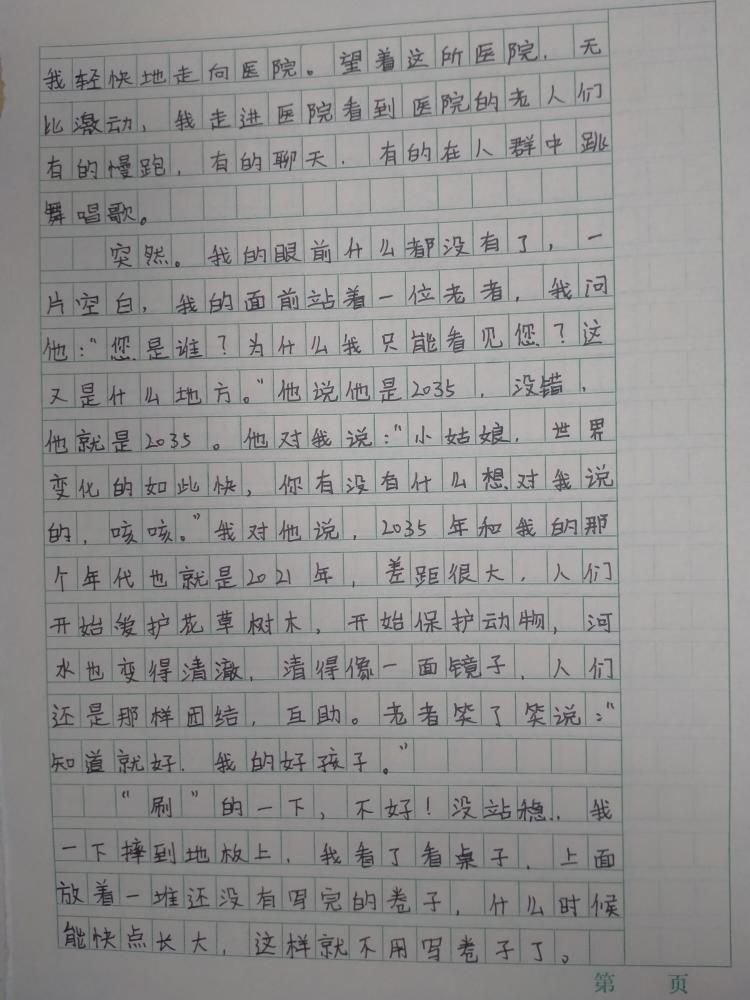 我轻快地走向医院。望着这所医院，无
比激动，我走进医院看到医院的老人们
有的慢跑，有的聊天，有的在人群中跳
舞唱歌。
突然。我的眼前什么都没有了，一
片空白，我的面前站着一位老者，我问
他："您是谁？为什么我只能看见您？这
又是什么地方。"他说他是2035，没错，
他就是2035。他对我说："小姑娘，世界
变化的如此快，你有没有什么想对我说
的，咳咳。"我对他说，2035年和我的那
个年代也就是2021年，差距很大，人们
开始爱护花草树木，开始保护动物，河
水也变得清澈，清得像一面镜子，人们
还是那样团结，互助。老者笑了笑说："
知道就好，我的好孩子。"
"刷"的一下，不好！没站稳，我
一下摔到地板上，我看了看桌子，上面
放着一堆还没有写完的卷子，什么时候
能快点长大，这样就不用写卷子了。
第 页